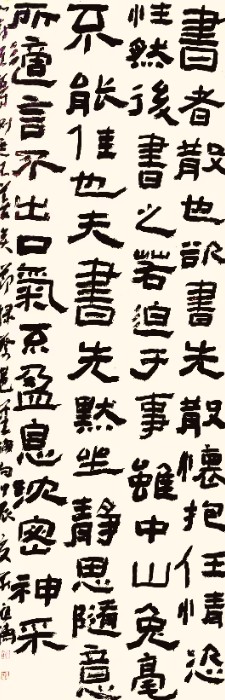 書者散也欲書先散懷抱任情恣
性然後書之若迫于事雖中山兔毫
不能佳也夫書先默坐靜思隨意
所適言不出口氣不盈息沈密神采